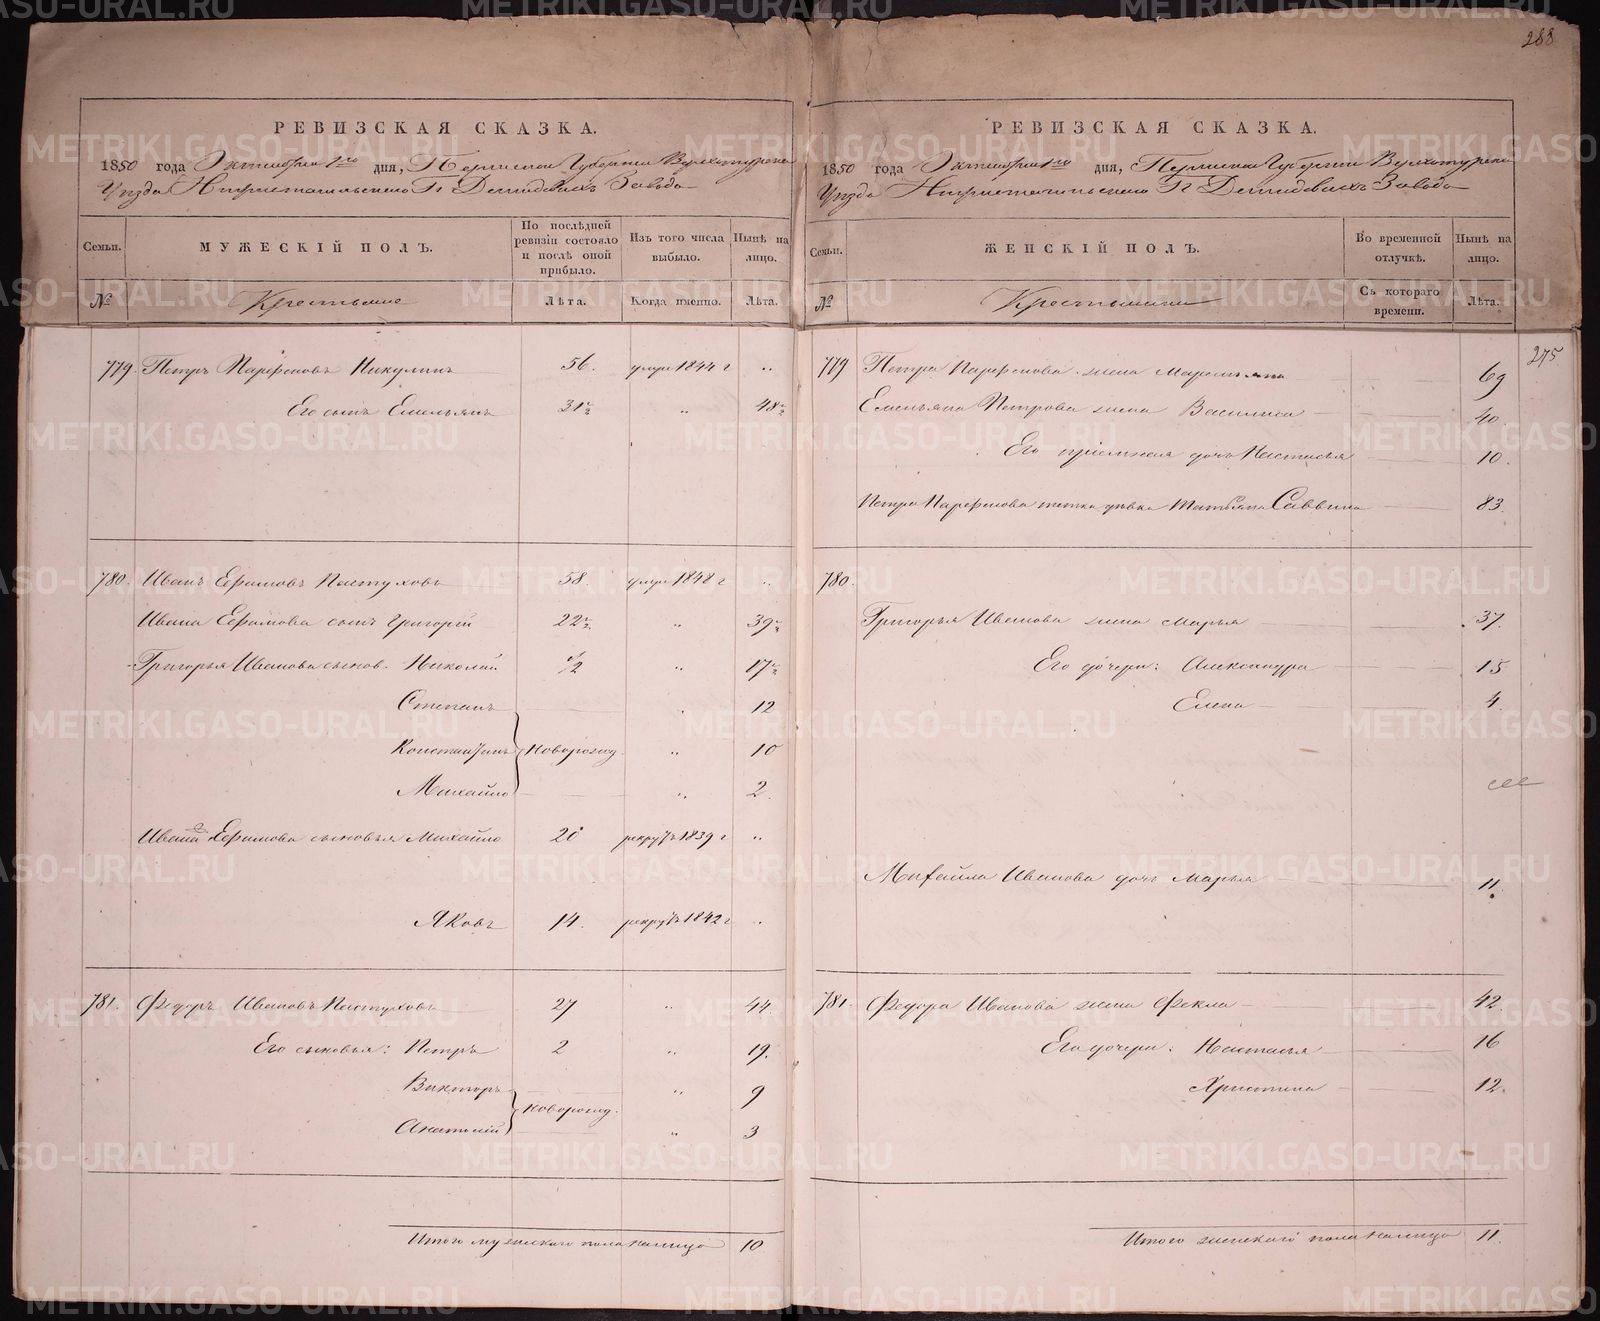 288
РЕВИЗСКАЯ СКАЗКА.
1850 года Октября 1го дня, Пермской Губернии Верхотурскаго
Уѣзда Нижнетагильскаго Гг. Демидовыхъ Завода
Семьи. МУЖЕСКІЙ ПОЛЪ. По послѣдней ревизіи состояло и послѣ оной прибыло. Изъ того числа выбыло. Нынѣ на лицо.
№ Крестьяне Лѣта. Когда именно. Лѣта.
779. Петръ Парфеновъ Никулинъ 56. умре 1844 г "
Его сынъ Емельянъ 31½ " 48½
780. Иванъ Ефимовъ Пастуховъ 58. умре 1848 г "
Ивана Ефимова сынъ Григорій 22½ " 39½
Григорья Иванова сынов. Николай ½ " 17½
Степанъ " 12
Константинъ новорожд. " 10
Михайло " 2.
Ивана Ефимова сыновья Михайло 20 рекрут 1839 г "
Яковъ 14. рекрут 1842 г "
781. Федоръ Ивановъ Пастуховъ 27 " 44.
Его сыновья: Петръ 2 " 19.
Викторъ " 9
новорожд.
Анатолій " 3
Итого мужескаго пола налицо 10
РЕВИЗСКАЯ СКАЗКА.
1850 года Октября 1го дня, Пермской Губерніи Верхотурскаго
Уѣзда Нижнетагильскаго Гг. Демидовыхъ Завода
Семьи. ЖЕНСКІЙ ПОЛЪ. Во временной отлучкѣ. Нынѣ на лицо.
№ Крестьянки Съ котораго времени. Лѣта.
275
779 Петра Парфенова жена Маремьяна 69
Емельяна Петрова жена Василиса 40.
Его пріемная дочь Настасья 10.
Петра Парфенова тетка дѣвка Татьяна Саввина 83.
780.
Григорья Иванова жена Марья 37.
Его дочери: Александра 15
Елена 4.
Михайла Иванова дочь Марья 11.
781. Федора Иванова жена Фекла 42.
Его дочери: Настасья 16
Христина 12.
Итого женскаго пола налицо 11.
METRIKI.GASO-URAL.RU